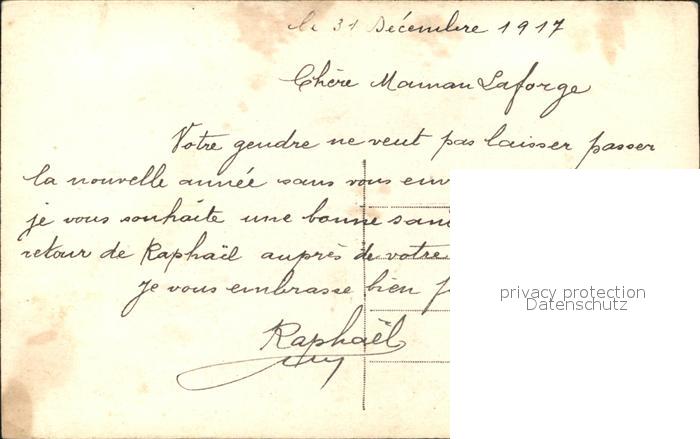 le 31 Décembre 1917
Chère Maman Laforge
Votre gendre ne veut pas laisser passer
la nouvelle année sans vous env
je vous souhaite une bonne san
retour de Raphaël auprès de votre
je vous embrasse bien
Raphaël
privacy protection
Datenschutz